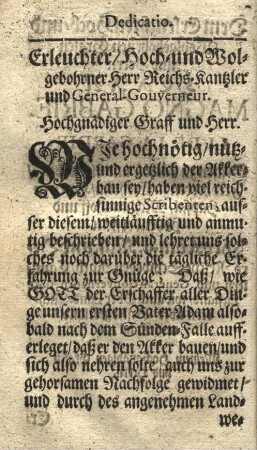 Dedicatio.
Erleuchter/ Hoch- und Wol-
gebohrner Herr Reichs-Kantzler
und General-Gouverneur.
Hochgnädiger Graff und Herr.
WIe hochnötig/ nütz-
und ergetzlich der Akker-
bau sey/ haben viel reich-
sinnige Scribenten aus-
ser diesem/ weitläufftig und anmu-
tig beschrieben/ und lehret uns sol-
ches noch darüber die tägliche Er-
fahrung zur Gnüge. Daß/ wie
GOTT der Erschaffer aller Din-
ge unsern ersten Vater Adam also-
bald nach dem Sünden-Falle auff-
erleget/ daß er den Akker bauen/ und
sich also nehren solte/ auch uns zur
gehorsamen Nachfolge gewidmet/
und durch des angenehmen Land-
we-